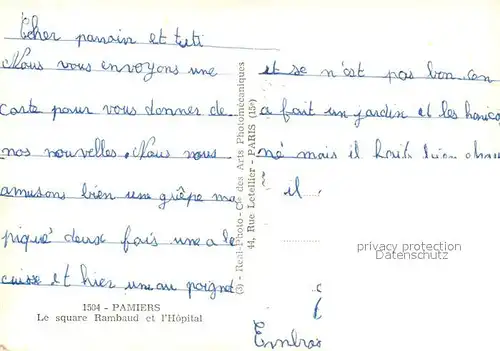 Cher parrain et tati
Nous vous envoyons une
carte pour vous donner de
nos nouvelles. Nous nous
amusons bien une guêpe ma
piqué deux fois une a le
cuisse et hier une au poignet
et se n'est pas bon. on
a fait un jardin et les harico
né mais il
il
Embras
1504 - PAMIERS
Le square Rambaud et l'Hôpital
(3) - Real-Photo - Cie des Arts Photomécaniques
44, Rue Letellier - PARIS (15e)
privacy protection
Datenschutz